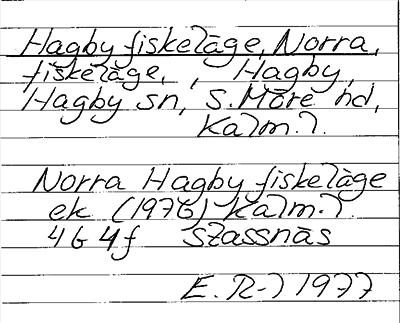 Hagby fiskeläge, Norra,
fiskeläge, , Hagby,
Hagby sn, S. Möre hd,
Kalm. l.
Norra Hagby fiskeläge
ek (1976) Kalm. l.
4G 4f Slassnäs
E. R-l 1977